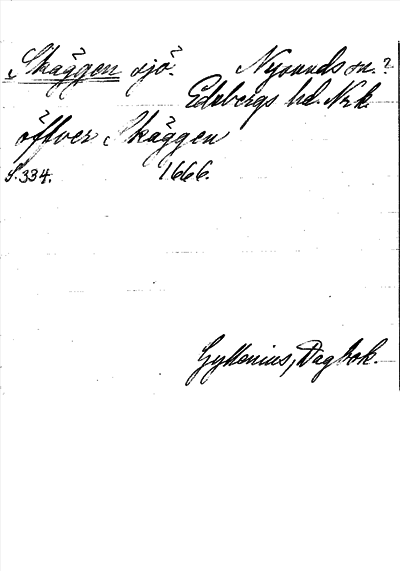 Skäggen sjö. Nysunds sn.?
Edsbergs hd. Nrk.
öfwer Skäggen
S. 334. 1666.
Gyllenius, Dagbok.